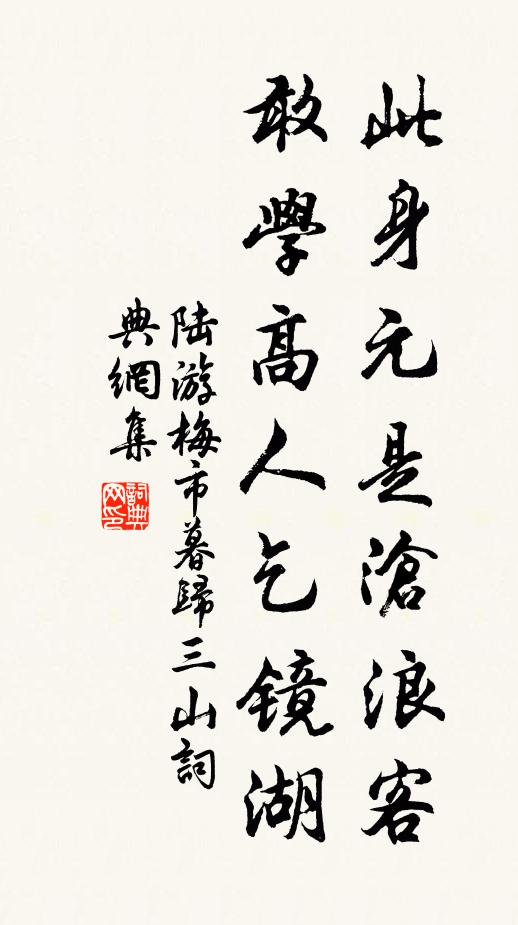 此身元是滄浪客
敢學高人乞镜湖
陆游梅市暮歸三山詞
典網集
詞典網印